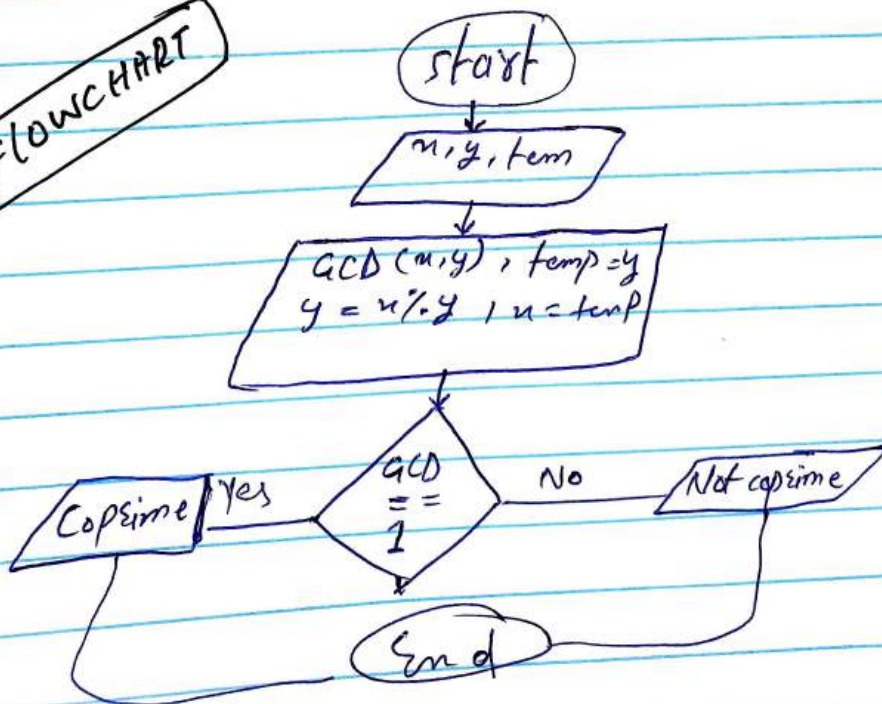 FLOWCHART
start
x, y, tem
GCD (x,y), temp=y
y = x%y, x = temp
GCD
==
1
Yes
Coprime
No
Not coprime
End